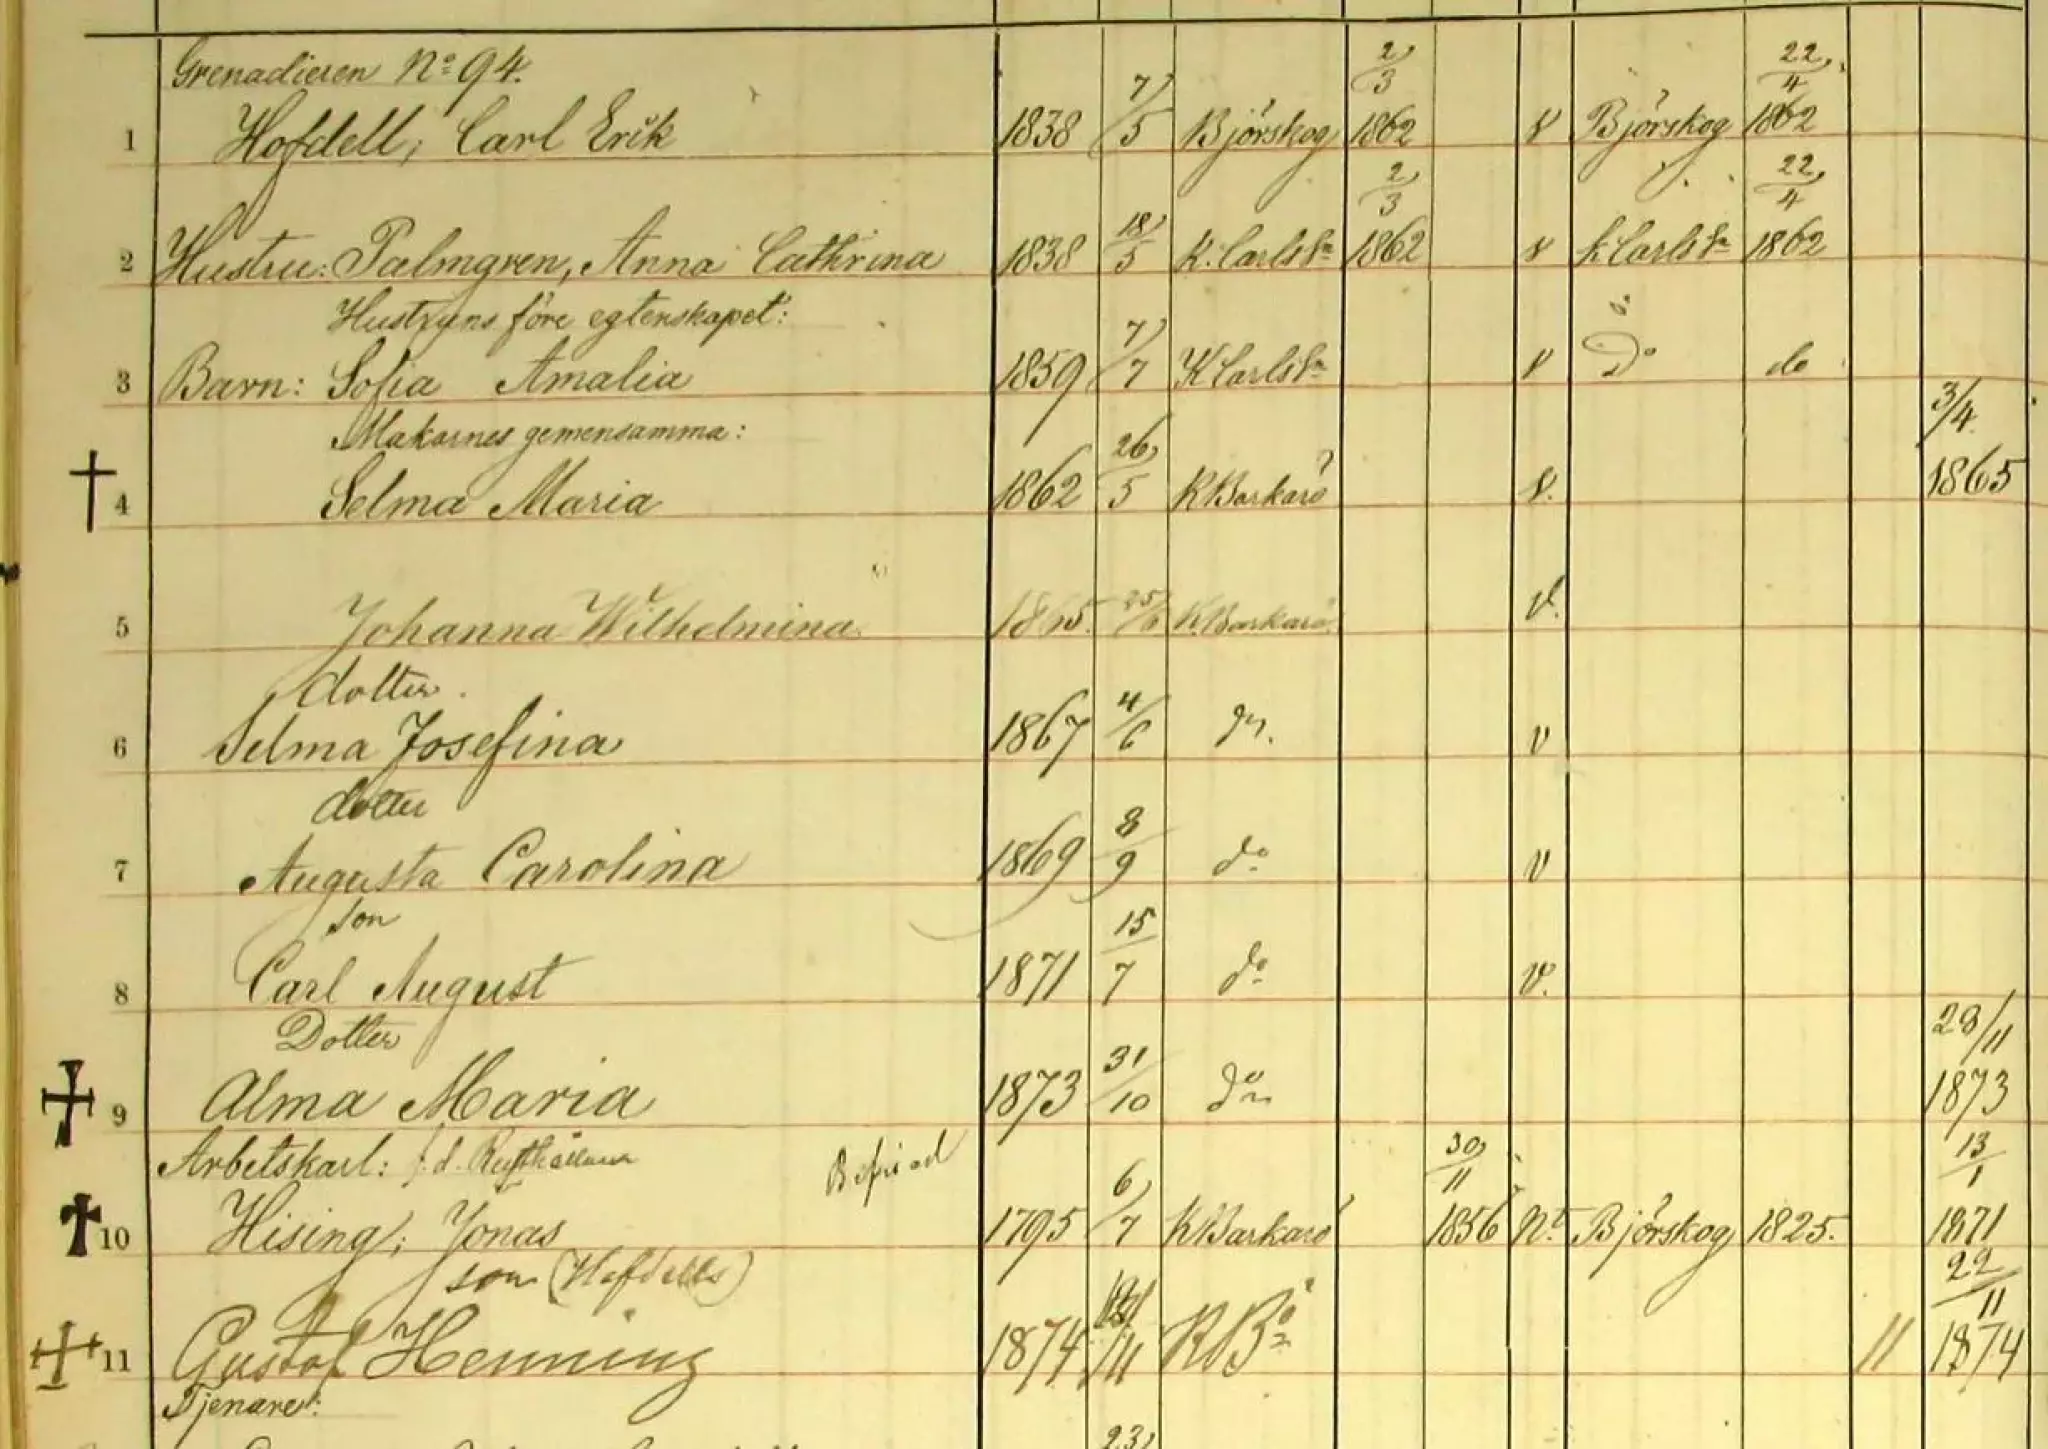 Grenadieren No 94.
2/3 22/4
1 Hofdell, Carl Erik 1838 7/5 Björskog 1862 v Björskog 1862
2/3 22/4
2 Hustru: Palmgren, Anna Cathrina 1838 18/5 K. Carlsba 1862 v K Carlsba 1862
Hustruns före egtenskapet:
3 Barn: Sofia Amalia 1859 7/7 K Carlsba v Do do
Makarnes gemensamma: 3/4
† 4 Selma Maria 1862 26/5 K Barkarö v. 1865
5 Johanna Wilhelmina 1865. 25/6 K. Barkarö. v.
dotter.
6 Selma Josefina 1867 4/6 v
dotter
7 Augusta Carolina 1869 8/9 do v
son
8 Carl August 1871 15/7 do v.
Dotter 28/11
9 Alma Maria 1873 31/10 do 1873
Arbetskarl: f.d. Befriad 30/11 13/1
10 Hising, Jonas 1795 6/7 K Barkarö 1856 Nt. Björskog 1825. 1871
son (Hofdells) 22/11
11 Gustof Henning 1874 /11 KBö 11 1874
Tjenare:
23